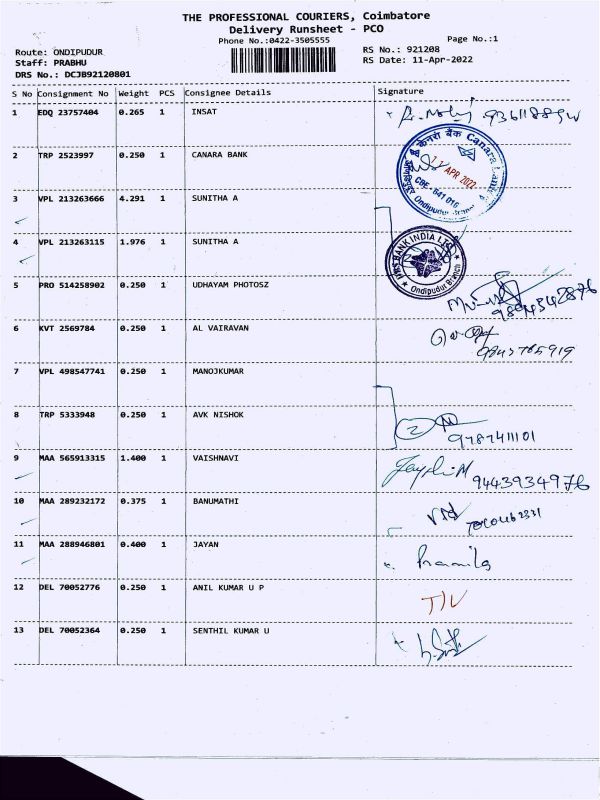 THE PROFESSIONAL COURIERS, Coimbatore
Delivery Runsheet - PCO
Phone No.:0422-3505555
Page No.:1
Route: ONDIPUDUR
RS No.: 921208
Staff: PRABHU
RS Date: 11-Apr-2022
DRS No.: DCJB92120801
S No Consignment No Weight PCS Consignee Details Signature
1 EDQ 23757404 0.265 1 INSAT
2 TRP 2523997 0.250 1 CANARA BANK
केनरा बैंक Canara Bank
11 APR 2022
CBE - 641 016
Ondipudur Branch
3 VPL 213263666 4.291 1 SUNITHA A
4 VPL 213263115 1.976 1 SUNITHA A
BANK INDIA LTD
Ondipudur Branch
5 PRO 514258902 0.250 1 UDHAYAM PHOTOSZ
9894342876
6 KVT 2569784 0.250 1 AL VAIRAVAN
7 VPL 498547741 0.250 1 MANOJKUMAR
8 TRP 5333948 0.250 1 AVK NISHOK
2
9787411101
9 MAA 565913315 1.400 1 VAISHNAVI
9443934976
10 MAA 289232172 0.375 1 BANUMATHI
11 MAA 288946801 0.400 1 JAYAN
Pramila
12 DEL 70052776 0.250 1 ANIL KUMAR U P
13 DEL 70052364 0.250 1 SENTHIL KUMAR U